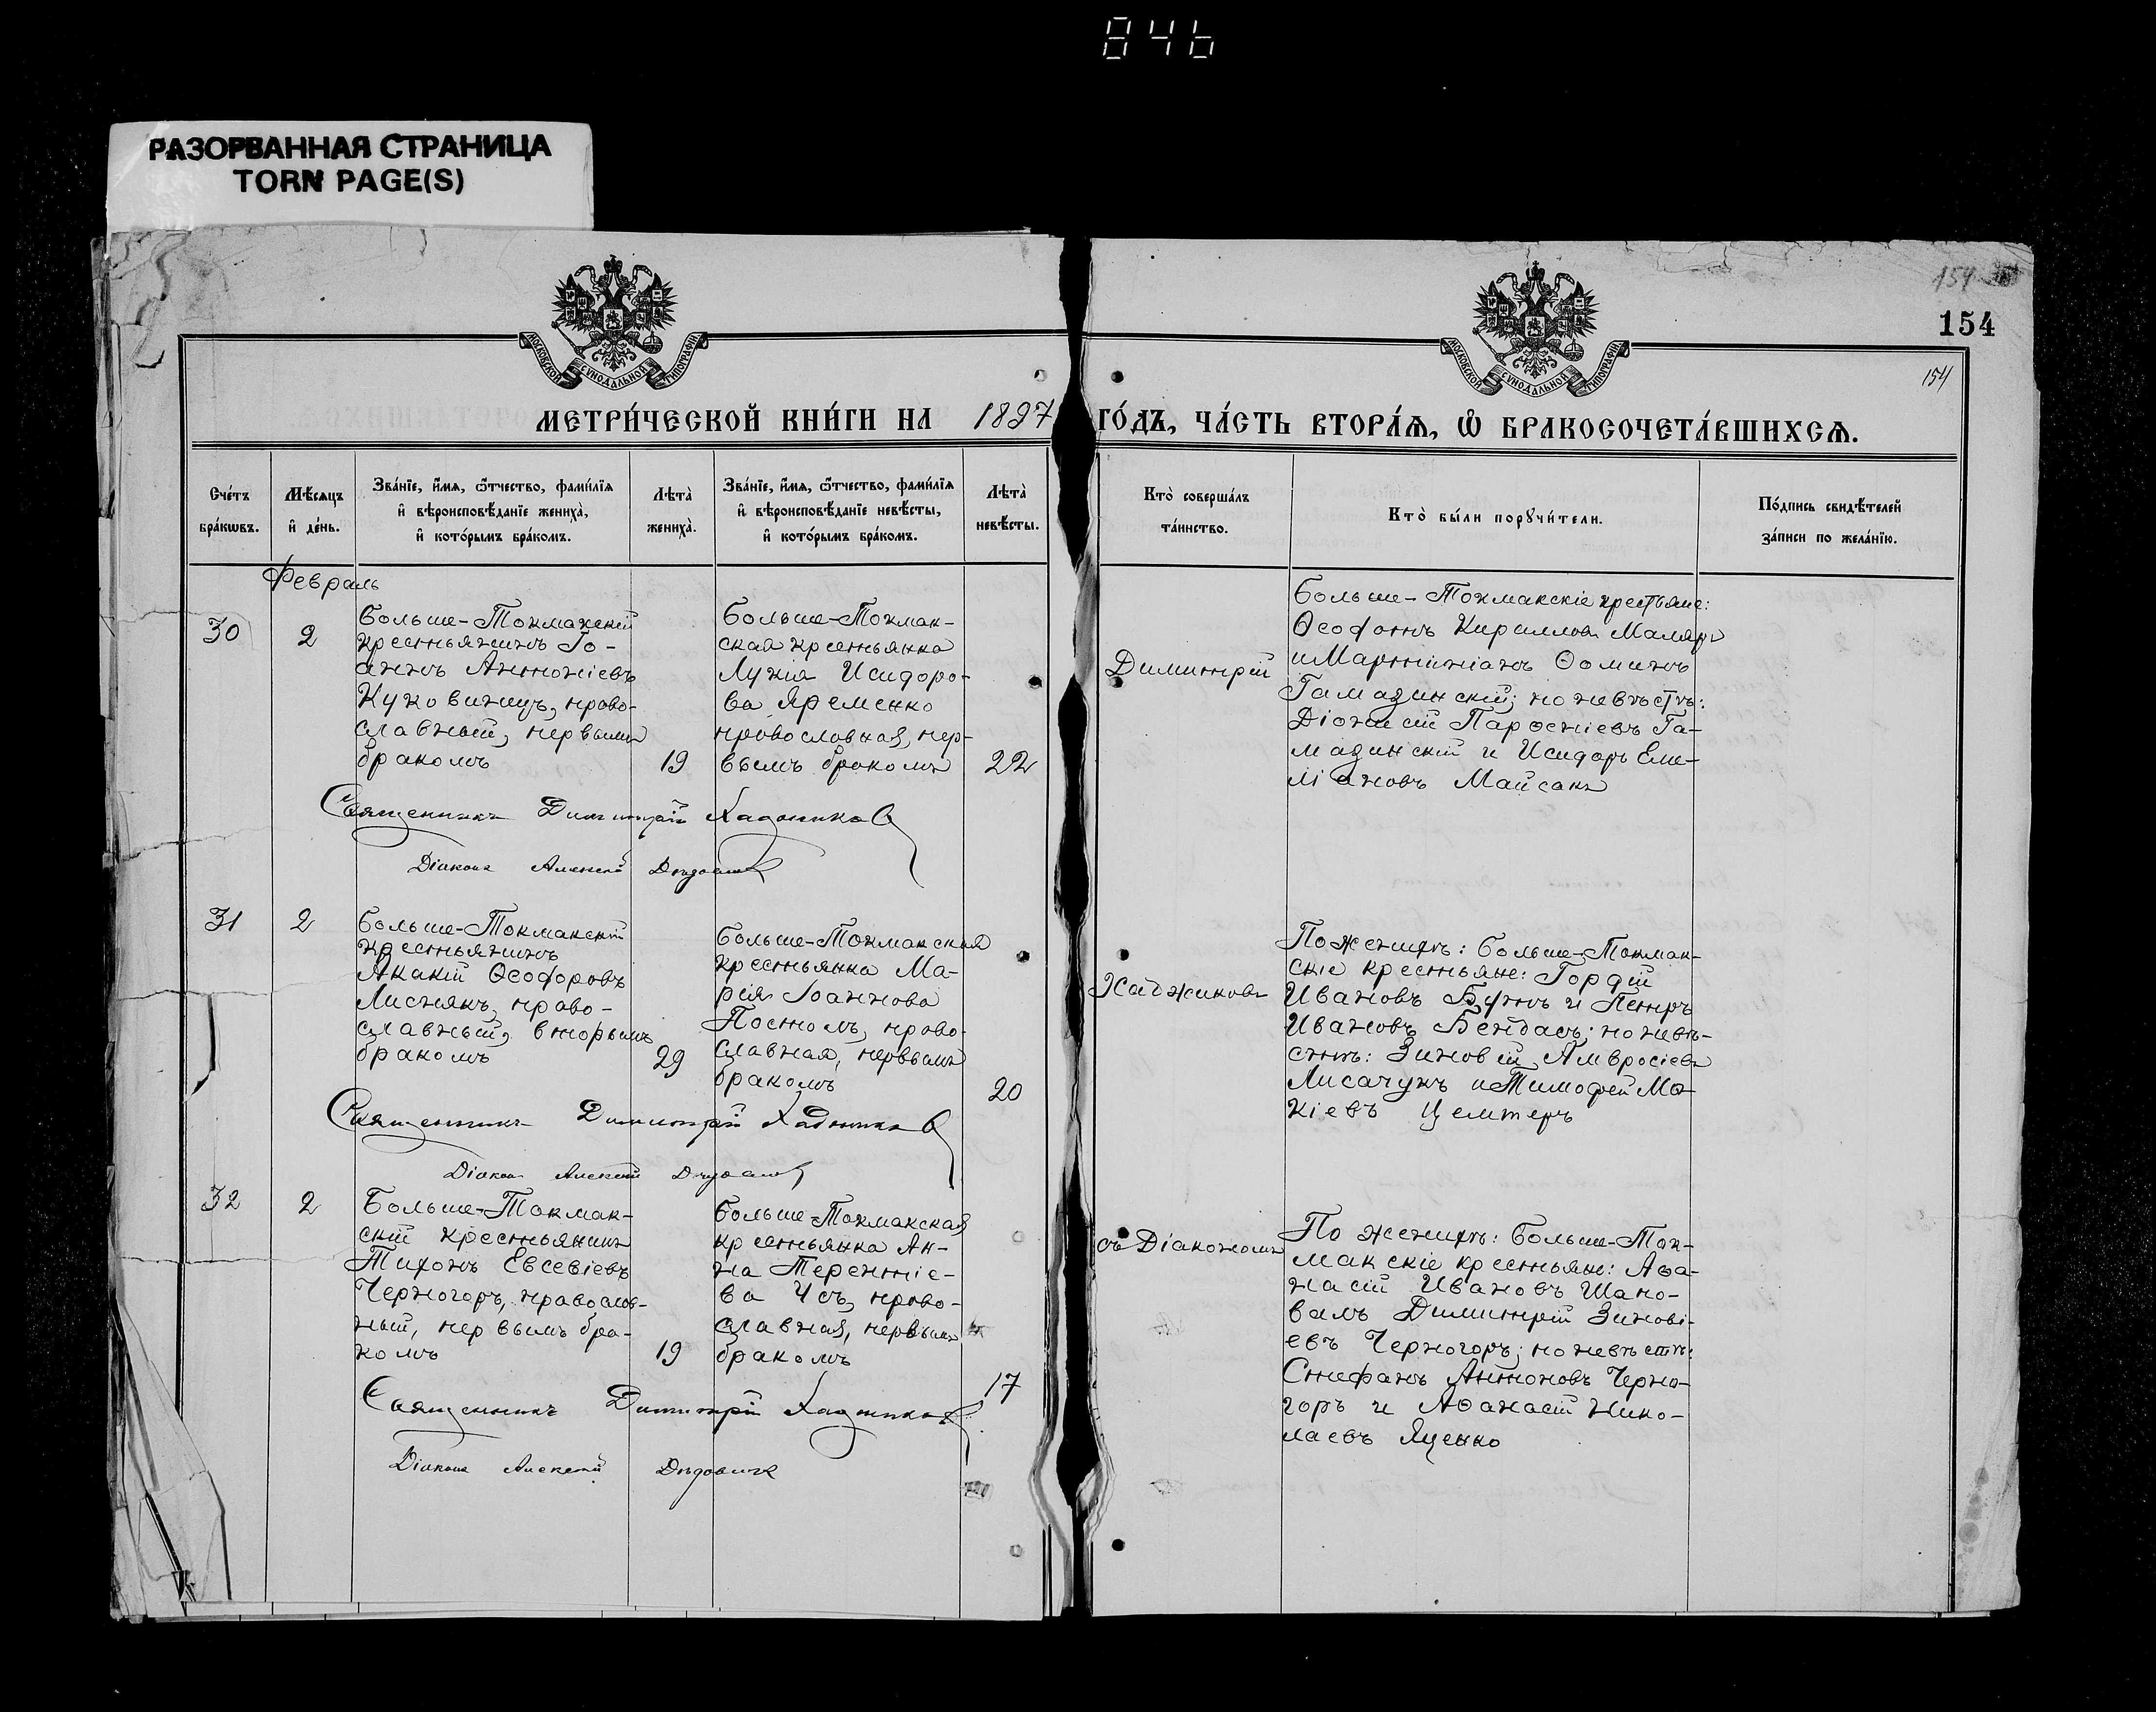 846
РАЗОРВАННАЯ СТРАНИЦА
TORN PAGE(S)
154
154
МОСКОВСКОЙ СѴНОДАЛЬНОЙ ТИПОГРАФІИ
МОСКОВСКОЙ СѴНОДАЛЬНОЙ ТИПОГРАФІИ
МЕТРИ́ЧЕСКОЙ КНИ́ГИ НА 1897 ГО́ДЪ, ЧА́СТЬ ВТОРА́Ѧ, Ѡ҆ БРАКОСОЧЕТА́ВШИХСѦ.
Сче́тъ
бра́кωвъ.
Мѣ́сяцъ
и҆ де́нь.
Зва́нїе, и҆́мя, ѻ҆́тчество, фами́лїя
и҆ вѣроисповѣ́данїе жениха̀,
и҆ кото́рымъ бра́комъ.
Лѣта̀
жениха̀.
Зва́нїе, и҆́мя, ѻ҆́тчество, фами́лїя
и҆ вѣроисповѣ́данїе невѣ́сты,
и҆ кото́рымъ бра́комъ.
Лѣта̀
невѣ́сты.
Кто̀ соверша́лъ
та́инство.
Кто̀ бы́ли порꙋчи́тели.
По́дпись свидѣ́телей
за́писи по жела́нїю.
Февраль
30
2
Больше-Токмакскій
крестьянинъ Іо-
аннъ Антоніевъ
Куковицкъ, право-
славный, первымъ
бракомъ
19
Больше-Токмак-
ская крестьянка
Лукія Исидоро-
ва Яременко
православная, пер-
вымъ бракомъ
22
Димитрій
Больше-Токмакскіе крестьяне:
Ѳеофанъ Кирилловъ Маляръ
и Мартиніанъ Ѳоминъ
Гамазинскій; по невѣстѣ:
Діонисій Парѳеніевъ Га-
мазинскій и Исидоръ Еми-
ліановъ Майсакъ
Священникъ Димитрій Хаджиновъ
Діаконъ Алексій
31
2
Больше-Токмакскій
крестьянинъ
Акакій Ѳеофоровъ
Лиснякъ, право-
славный, вторымъ
бракомъ
29
Больше-Токмакская
крестьянка Ма-
рія Іоаннова
Постолъ, право-
славная, первымъ
бракомъ
20
Хаджиновъ
По женихѣ: Больше-Токмак-
скіе крестьяне: Гордій
Ивановъ Бутъ и Петръ
Ивановъ Бендасъ; по невѣ-
стѣ: Зиновій Амвросіевъ
Лисачукъ и Тимофей Мо-
кіевъ Цемтеръ
Священникъ Димитрій Хаджиновъ
Діаконъ Алексій
32
2
Больше-Токмак-
скій крестьянинъ
Тихонъ Евсевіевъ
Черногоръ, православ-
ный, первымъ бра-
комъ
19
Больше-Токмакская
крестьянка Ан-
на Терентіе-
ва Усъ, право-
славная, первымъ
бракомъ
17
съ Діакономъ
По женихѣ: Больше-Ток-
макскіе крестьяне: Аѳа-
насій Ивановъ Шапо-
валъ Димитрій Зинові-
евъ Черногоръ; по невѣстѣ:
Стефанъ Антоновъ Черно-
горъ и Аѳанасій Нико-
лаевъ Яценко
Священникъ Димитрій Хаджиновъ
Діаконъ Алексій